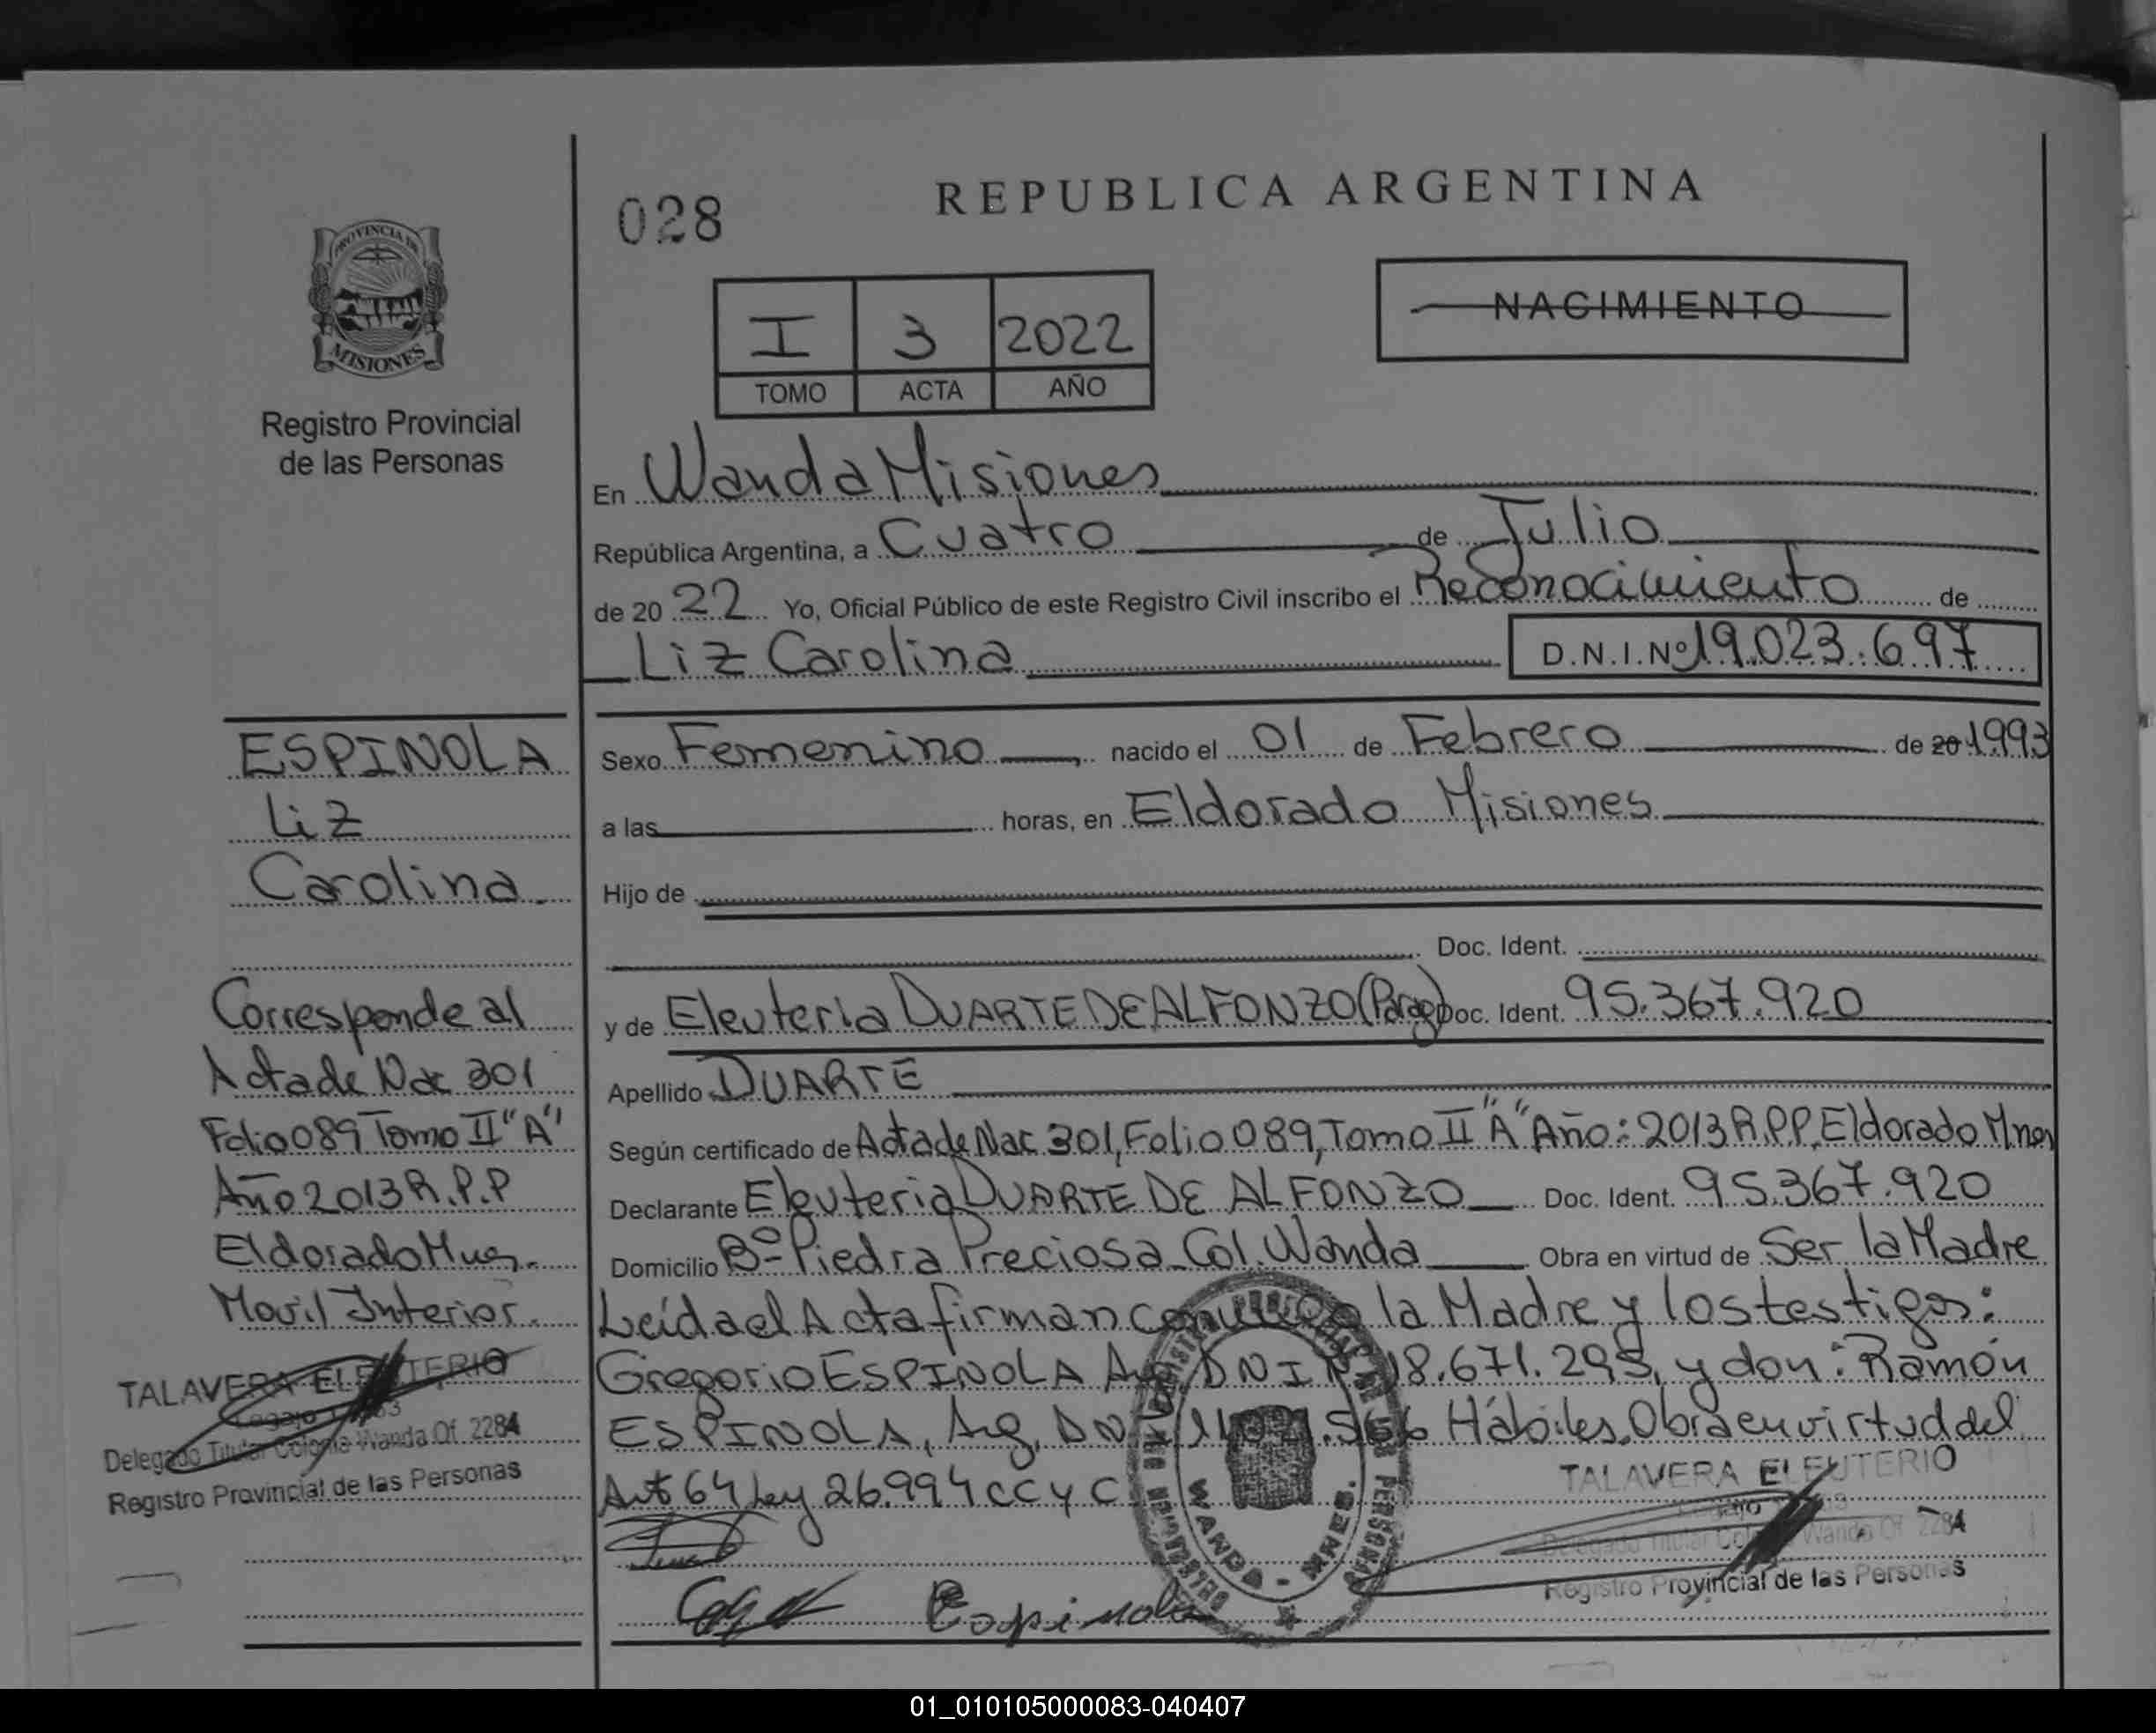 028
REPUBLICA ARGENTINA
PROVINCIA DE
MISIONES
Registro Provincial
de las Personas
I 3 2022
TOMO ACTA AÑO
NACIMIENTO
En Wanda Misiones
República Argentina, a Cuatro de Julio
de 20 22 Yo, Oficial Público de este Registro Civil inscribo el Reconocimiento de
Liz Carolina D.N.I.Nº 19.023.697
ESPINOLA
Liz
Carolina.
Corresponde al
Acta de Nac 301
Folio 089 Tomo II "A"
Año 2013 R.P.P
Eldorado Mnes.
Movil Interior.
TALAVERA ELEUTERIO
Legajo
Delegado Titular Colonia Wanda Of. 2284
Registro Provincial de las Personas
Sexo Femenino nacido el 01 de Febrero de 20 1993
a las horas, en Eldorado Misiones
Hijo de
Doc. Ident.
y de Eleuteria DUARTE DE ALFONZO (Parag) Doc. Ident. 95.367.920
Apellido DUARTE
Según certificado de Acta de Nac 301, Folio 089, Tomo II "A" Año: 2013 R.P.P. Eldorado Mnes
Declarante Eleuteria DUARTE DE ALFONZO Doc. Ident. 95.367.920
Domicilio Bº Piedra Preciosa Col. Wanda Obra en virtud de Ser la Madre
Leída el Acta firman conmigo la Madre y los testigos:
Gregorio ESPINOLA Arg. DNI 18.671.293, y don: Ramón
ESPINOLA, Arg. DNI Hábiles. Obra en virtud del
Art 64 Ley 26.994 CC y C
WANDA - MNES.
TALAVERA ELEUTERIO
Legajo
Delegado Titular Colonia Wanda Of. 2284
Registro Provincial de las Personas
Espinola
01_010105000083-040407